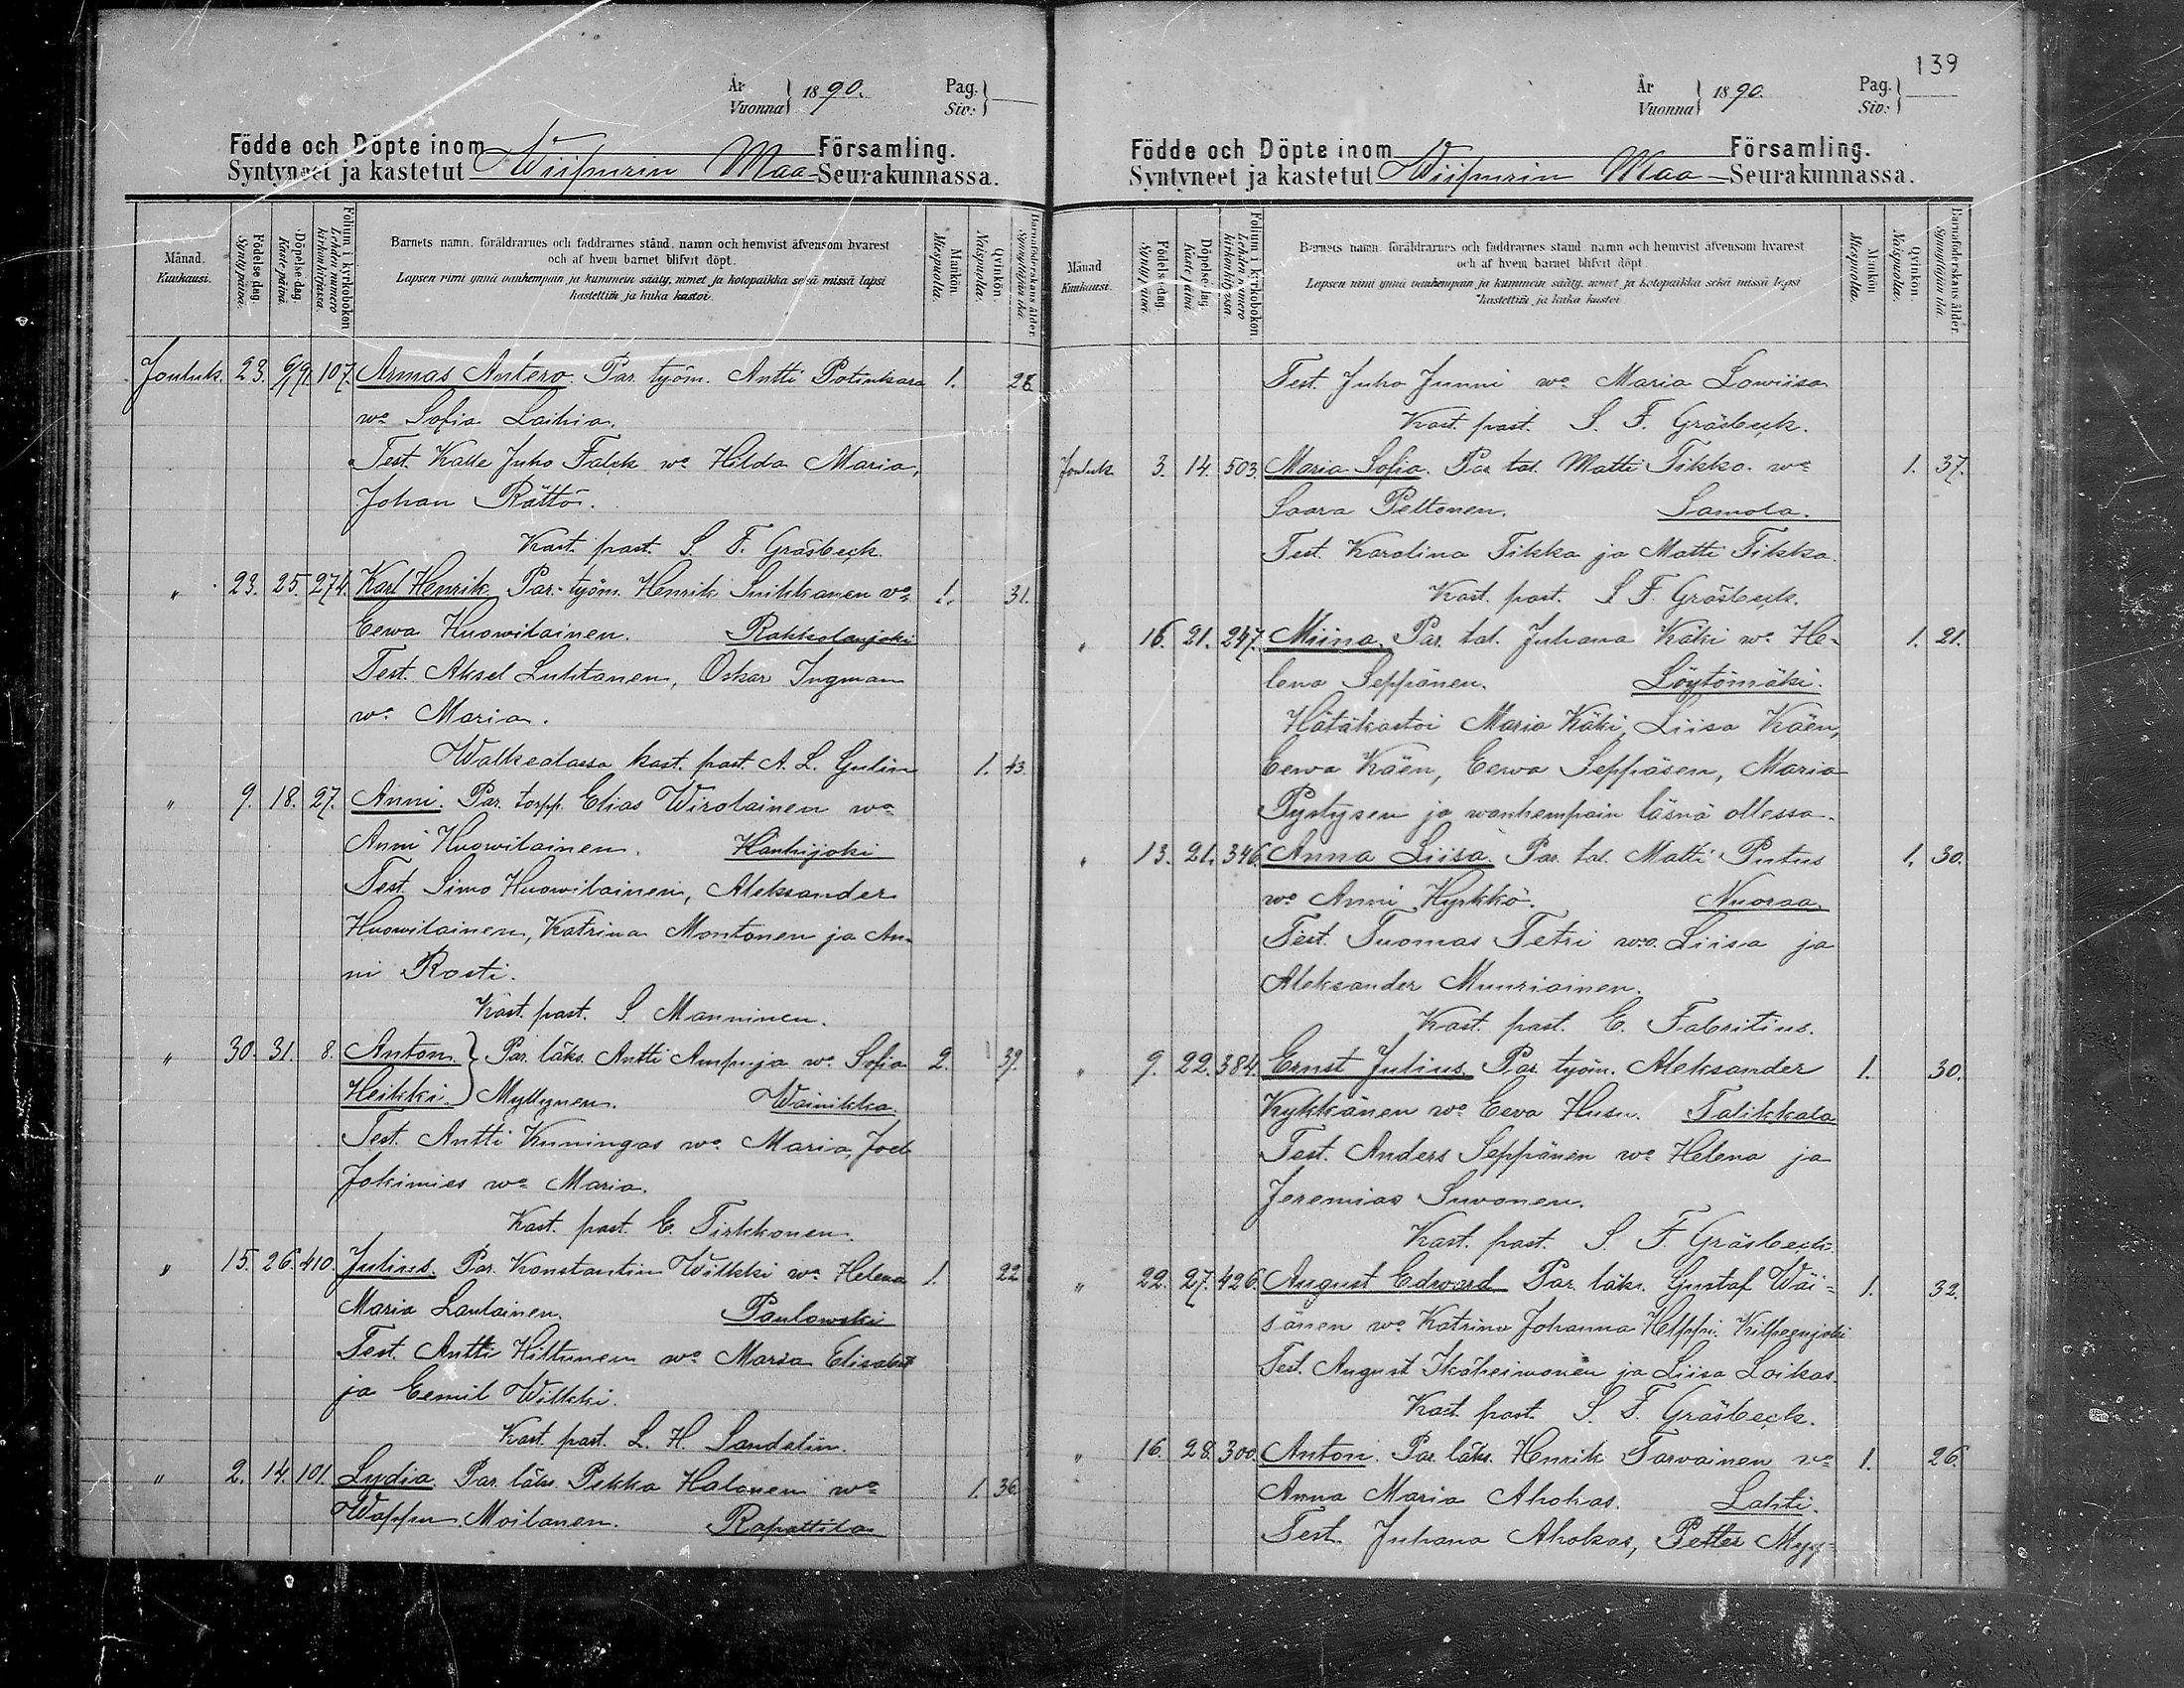 År
Vuonna } 1890. Pag.
Siv: } —
Födde och Döpte inom Församling.
Syntyneet ja kastetut Wiipurin Maa-Seurakunnassa.
Månad.
Kuukausi.
Födelse dag.
Synty päivä.
Döpelse dag.
Kaste päivä.
Folium i kyrkoboken
Lehden numero kirkonkirjassa.
Barnets namn, föräldrarnes och faddrarnes stånd, namn och hemvist äfvensom hvarest
och af hvem barnet blifvit döpt.
Lapsen nimi ynnä vanhempain ja kummein sääty, nimet ja kotopaikka sekä missä lapsi
kastettiin ja kuka kastoi.
Mankön.
Miespuolia.
Qvinkön.
Naispuolia.
Barnaföderskans ålder.
Synnyttäjän ikä.
Jouluk. 23. 6/1 91. 107. Armas Antero. Par. työm. Antti Potinkara 1. 28
wo Sofia Laihia.
Test. Kalle Juho Falck wo Hilda Maria,
Johan Rättö.
Kast. past. S. F. Gräsbeck.
" 23. 25. 274. Karl Henrik. Par. työm. Henrik Suikkanen wo 1. 31.
Eewa Huowilainen. Rakkolanjoki
Test. Aksel Luhtanen, Oskar Ingman
wo Maria.
Walkealassa kast. past. A. L. Gulin 1. 43.
" 9. 18. 27. Anni. Par. torpp. Elias Wirolainen wo
Anni Huowilainen. Hanhijoki
Test. Simo Huowilainen, Aleksander
Huowilainen, Katrina Montonen ja An-
ni Rosti.
Kast. past. S. Manninen.
" 30. 31. 8. Anton. } Par. läks. Antti Ampuja wo Sofia 2. 39.
Heikki. } Myllynen. Wainikka.
Test. Antti Kuningas wo Maria, Joel
Jokimies wo Maria.
Kast. past. E. Tirkkonen.
" 15. 26. 410. Julius. Par. Konstantin Wilkki wo Helena 1. 22
Maria Laulainen. Paulowski
Test. Antti Hiltunen wo Maria Elisabet
ja Eemil Wilkki.
Kast. past. L. H. Sandelin.
" 2. 14. 101. Lydia. Par. läks. Pekka Halonen wo 1. 36.
Wappu Moilanen. Rapattila
139
År
Vuonna } 1890. Pag.
Siv: }
Födde och Döpte inom Församling.
Syntyneet ja kastetut Wiipurin Maa-Seurakunnassa.
Månad
Kuukausi.
Födelse dag.
Synty päivä.
Döpelse dag.
Kaste päivä
Folium i kyrkoboken
Lehden numero kirkonkirjassa
Barnets namn, föräldrarnes och faddrarnes stånd, namn och hemvist äfvensom hvarest
och af hvem barnet blifvit döpt
Lapsen nimi ynnä vanhempain ja kummein sääty, nimet ja kotopaikka sekä missä lapsi
kastettiin ja kuka kastoi
Mankön
Miespuolia.
Qvinkön.
Naispuolia.
Barnaföderskans ålder.
Synnyttäjän ikä.
Test. Juho Junni wo Maria Lowiisa
Kast. past. S. F. Gräsbeck.
Jouluk. 3. 14. 503. Maria Sofia. Par. tal. Matti Tikka wo 1. 37.
Saara Peltonen. Samola.
Test. Karolina Tikka ja Matti Tikka.
Kast. past. S. F. Gräsbeck.
" 16. 21. 247. Miina. Par. tal. Juhana Käki wo He- 1. 21.
lena Seppänen. Löytömäki.
Hätäkastoi Maria Käki, Liisa Käen,
Eewa Käen, Eewa Seppäsen, Maria
Pystysen ja wanhempain läsnä ollessa.
" 13. 21. 346. Anna Liisa. Par. tal. Matti Putus 1. 30.
wo Anni Hyrkkö. Nuoraa.
Test. Tuomas Tetri wo Liisa ja
Aleksander Muuriainen.
Kast. past. E. Fabritius.
" 9. 22. 384. Ernst Julius. Par. työm. Aleksander 1. 30.
Kykkänen wo Eeva Husu. Talikkala
Test. Anders Seppänen wo Helena ja
Jeremias Suvonen.
Kast. past. S. F. Gräsbeck.
" 22. 27. 426. August Edward. Par. läks. Gustaf Wäi- 1. 32.
sänen wo Katrina Johanna Helppi. Kilpeenjoki
Test. August Ikäheimonen ja Liisa Loikas.
Kast. past. S. F. Gräsbeck.
" 16. 28. 300. Anton. Par. läks. Henrik Tarvainen wo 1. 26.
Anna Maria Ahokas. Lahti.
Test. Juhana Ahokas, Petter Myy-